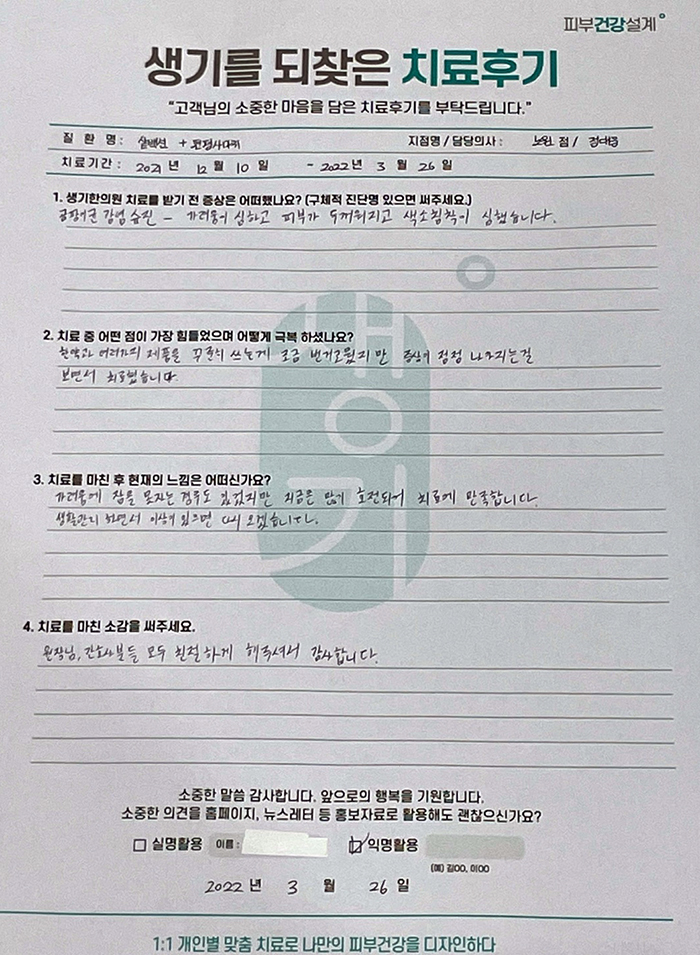 피부건강설계
생기를 되찾은 치료후기
"고객님의 소중한 마음을 담은 치료후기를 부탁드립니다."
질 환 명 : + 편평사마귀 지점명 / 담당의사 : 노원 점 /
치료기간 : 2021 년 12 월 10 일 ~ 2022 년 3 월 26 일
1. 생기한의원 치료를 받기 전 증상은 어떠했나요? (구체적 진단명 있으면 써주세요.)
습진 - 가려움이 심하고 피부가 두꺼워지고 색소침착이 심했습니다.
2. 치료 중 어떤 점이 가장 힘들었으며 어떻게 극복 하셨나요?
한약과 여러가지 제품을 꾸준히 쓰는게 조금 번거로웠지만 증상이 점점 나아지는걸
보면서 치료했습니다.
3. 치료를 마친 후 현재의 느낌은 어떠신가요?
가려움에 잠을 못자는 경우도 있었지만 지금은 많이 호전되어 치료에 만족합니다.
생활관리 하면서 이상이 있으면 다시 오겠습니다.
4. 치료를 마친 소감을 써주세요.
원장님, 간호사분들 모두 친절하게 해주셔서 감사합니다.
소중한 말씀 감사합니다. 앞으로의 행복을 기원합니다.
소중한 의견을 홈페이지, 뉴스레터 등 홍보자료로 활용해도 괜찮으신가요?
실명활용 이름 : 익명활용
(예) 김OO, 이OO
2022 년 3 월 26 일
1:1 개인별 맞춤 치료로 나만의 피부건강을 디자인하다